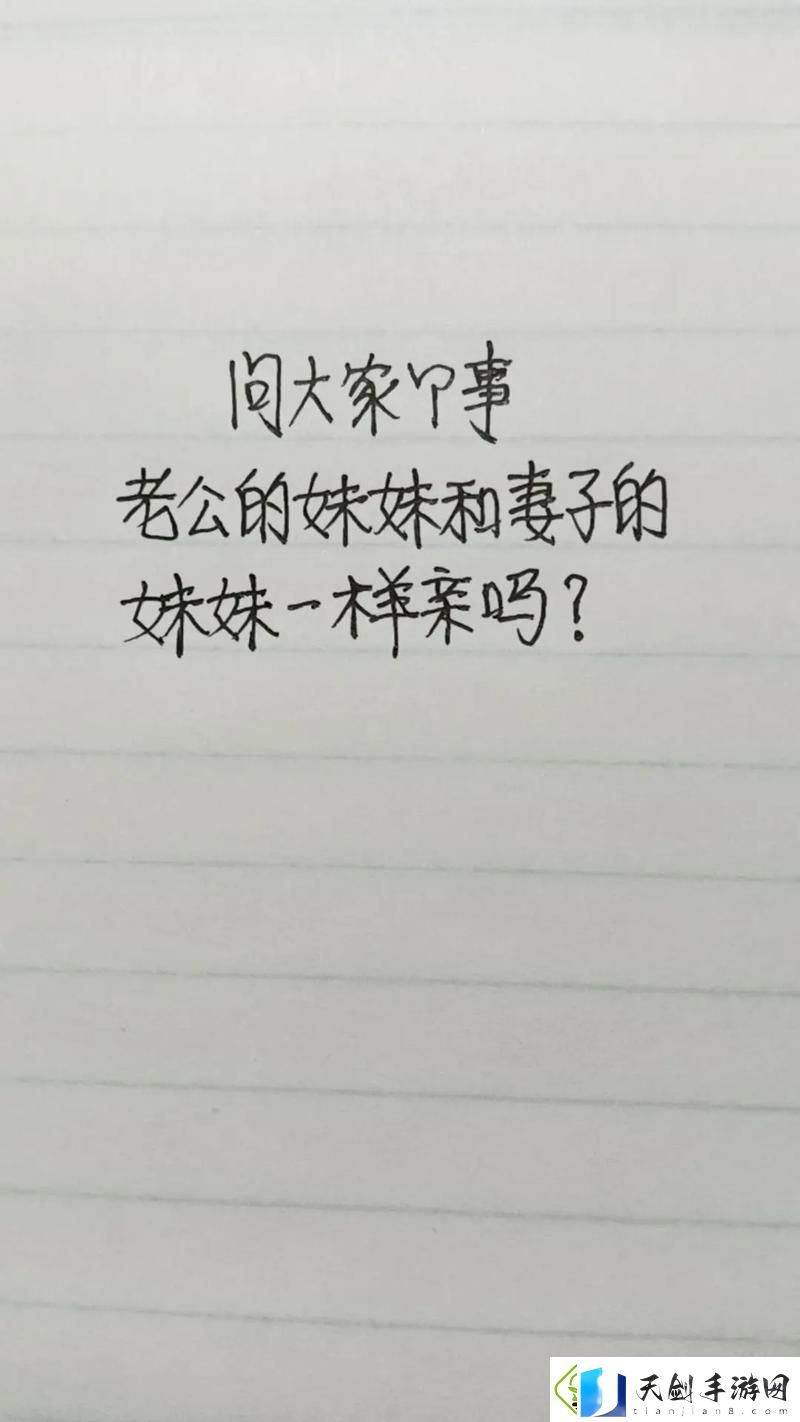 问大家个事
老公的妹妹和妻子的
妹妹一样亲吗？
天剑手游网
tianjian8.com